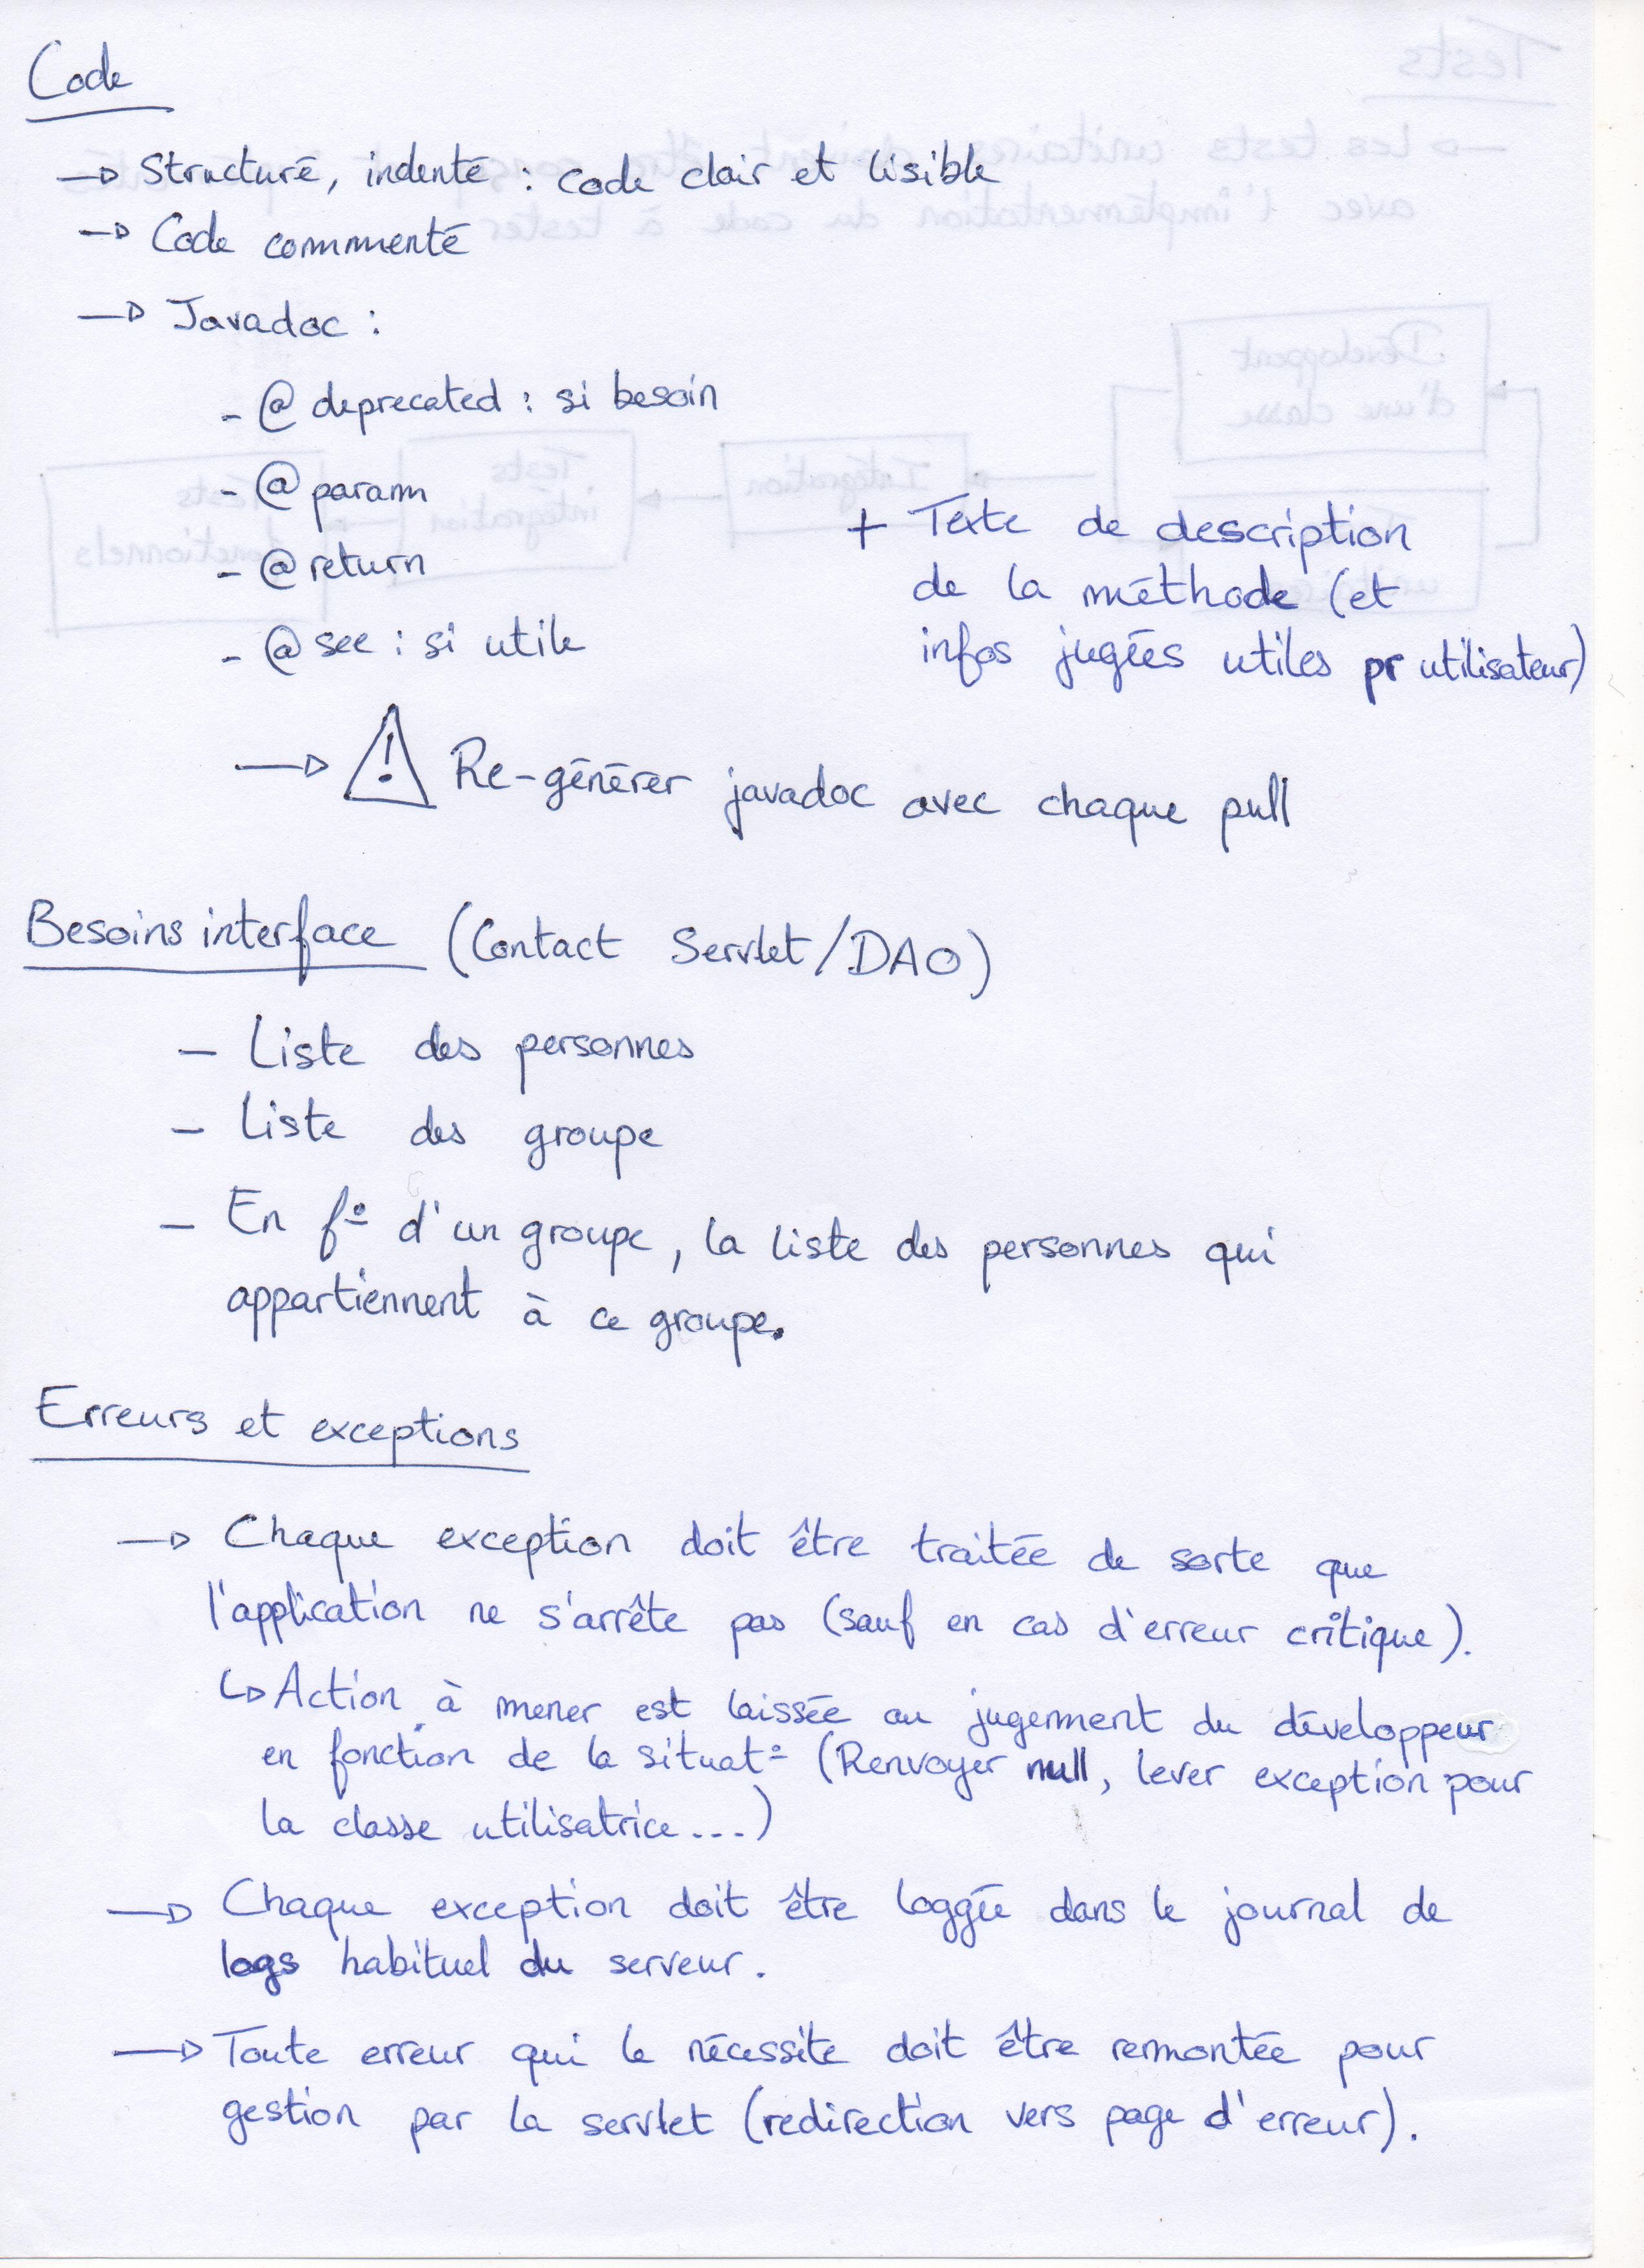 Code
→ Structuré, indenté : code clair et lisible
→ Code commenté
→ Javadoc :
- @deprecated : si besoin
- @param
- @return
- @see : si utile
+ Texte de description
de la méthode (et
infos jugées utiles pr utilisateur)
→ ⚠ Re-générer javadoc avec chaque pull
Besoins interface (Contact Servlet/DAO)
- Liste des personnes
- Liste des groupe
- En f° d'un groupe, la liste des personnes qui
appartiennent à ce groupe.
Erreurs et exceptions
→ Chaque exception doit être traitée de sorte que
l'application ne s'arrête pas (sauf en cas d'erreur critique).
↳ Action à mener est laissée au jugement du développeur
en fonction de la situat° (Renvoyer null, lever exception pour
la classe utilisatrice...)
→ Chaque exception doit être loggée dans le journal de
logs habituel du serveur.
→ Toute erreur qui le nécessite doit être remontée pour
gestion par la servlet (redirection vers page d'erreur).